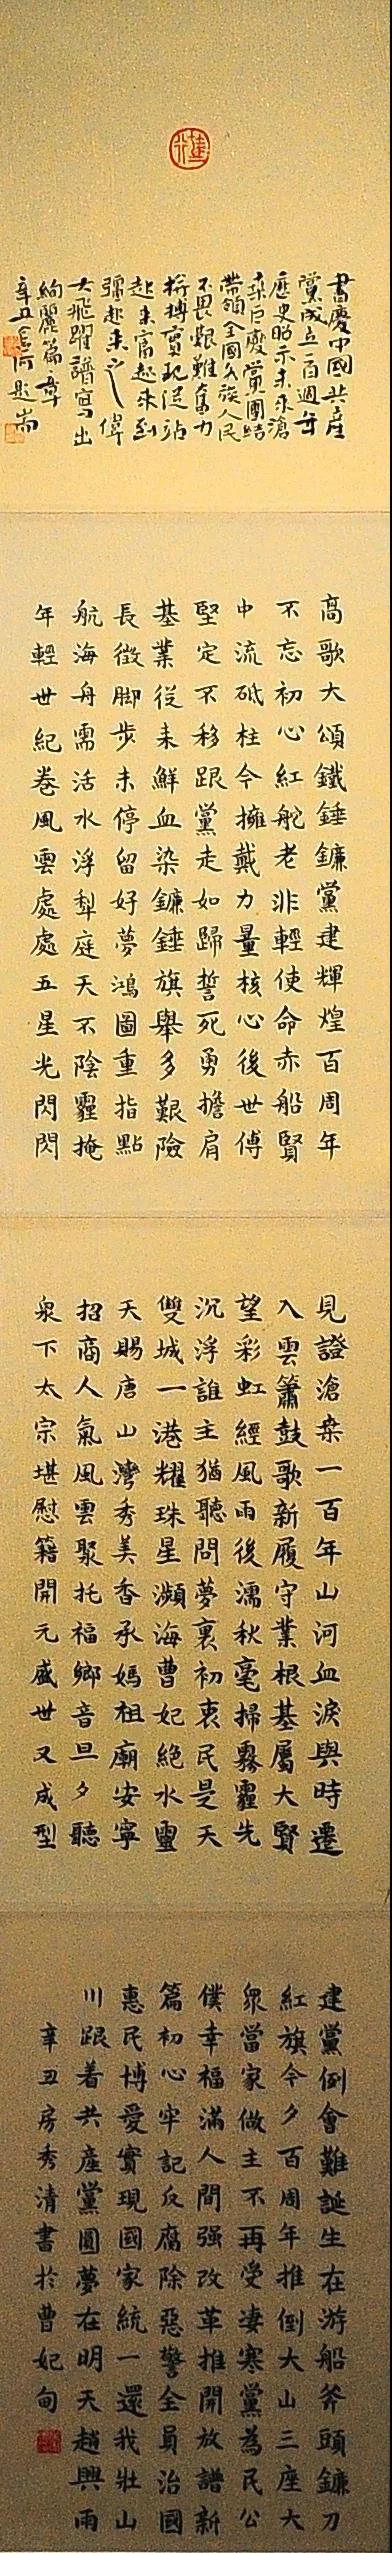 書慶中國共産
黨成立一百週年
歷史昭示未來滄
桑巨慶黨團結
帶領全國各族人民
不畏艱難奮力
拚搏實現從站
起來富起來到
强起來之偉
大飛躍譜寫出
絢麗篇章
辛丑 題
高歌大頌鐵錘鐮黨建輝煌百周年
不忘初心紅舵老非輕使命赤船賢
中流砥柱今擁戴力量核心後世傳
堅定不移跟黨走如歸誓死勇擔肩
基業從来鮮血染鐮錘旗舉多艱險
長徵脚步未停留好夢鴻圖重指點
航海舟需活水浮犁庭天不陰霾掩
年輕世紀卷風雲處處五星光閃閃
見證滄桒一百年山河血淚與時遷
入雲簫鼓歌新履守業根基屬大賢
望彩虹經風雨後濡秋毫掃霧霾先
沉浮誰主猶聽問夢裏初衷民是天
雙城一港耀珠星瀕海曹妃絶水靈
天賜唐山灣秀美香承媽祖廟安寧
招商人氣風雲聚托福鄉音旦夕聽
泉下太宗堪慰籍開元盛世又成型
建黨倒會難誕生在游船斧頭鐮刀
紅旗今夕百周年推倒大山三座大
衆當家做主不再受凄寒黨為民公
僕幸福滿人間强改革推開放譜新
篇初心牢記反腐除惡警全員治國
惠民博愛實現國家統一還我壯山
川跟着共産黨圓夢在明天趙興雨
辛丑房秀清書於曹妃甸